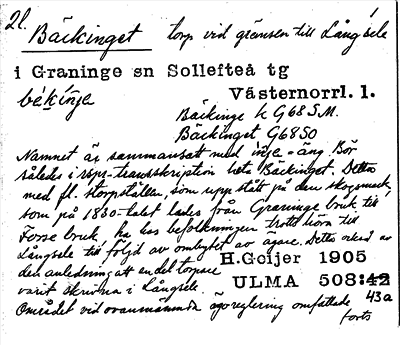 2l. Bäckinget torp vid gränsen till Långsele
i Graninge sn Sollefteå tg
bèkinje Västernorrl. l.
Bäckinge k G68 S.M.
Bäckinget G68 SO
Namnet är sammansatt med inje = äng Bör
således i rspr-transskription heta Bäckinget. Detta
med fl. torpställen, som uppstått på den skogsmark,
som på 1830-talet lades från Graninge bruk till
Forse bruk, ha dess befolkningen trott höra till
Långsele till följd av ombytet av ägare. Detta också av
den anledning att en del torpare
H.Geijer 1905
varit skrivna i Långsele.
ULMA 508:42
43a
Området vid ovannämnda ägoreglering omfattade
forts